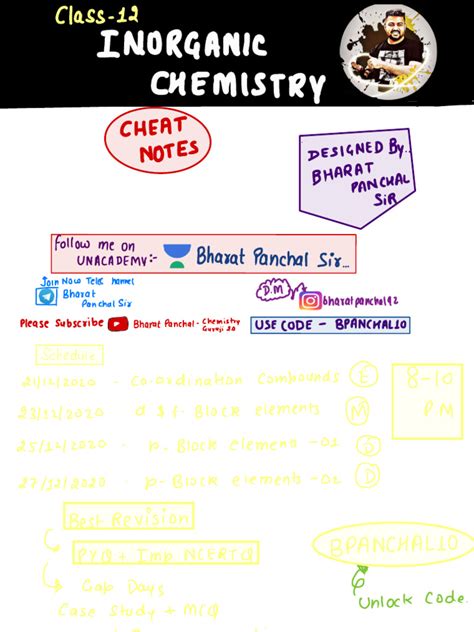 Class-12
INORGANIC
CHEMISTRY
CHEAT
NOTES
DESIGNED By..
BHARAT
PANCHAL
SiR
Follow me on
UNACADEMY:- Bharat Panchal Sir...
Join Now
Bharat
Panchal Sir
D.M
bharatpanchal92
Please Subscribe Bharat Panchal - Chemistry
Guruji 2.0
USE CODE - BPANCHAL10
Schedule
21/12/2020 - Co-ordination Compounds E
23/12/2020 - d & f - Block elements M
25/12/2020 - p-Block element -01 S
27/12/2020 - p-Block elements -02 D
8-10
P.M
Best Revision
PYQ + Imp NCERT Q
Gap Days
Case Study + MCQ
BPANCHAL10
Unlock Code.